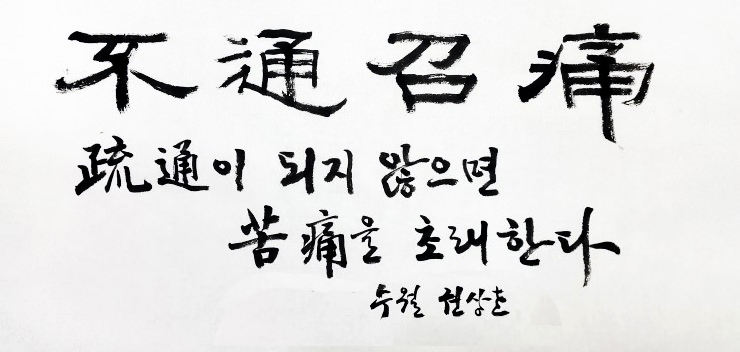 不通召痛
疏通이 되지 않으면
苦痛을 초래한다
수월 권상호